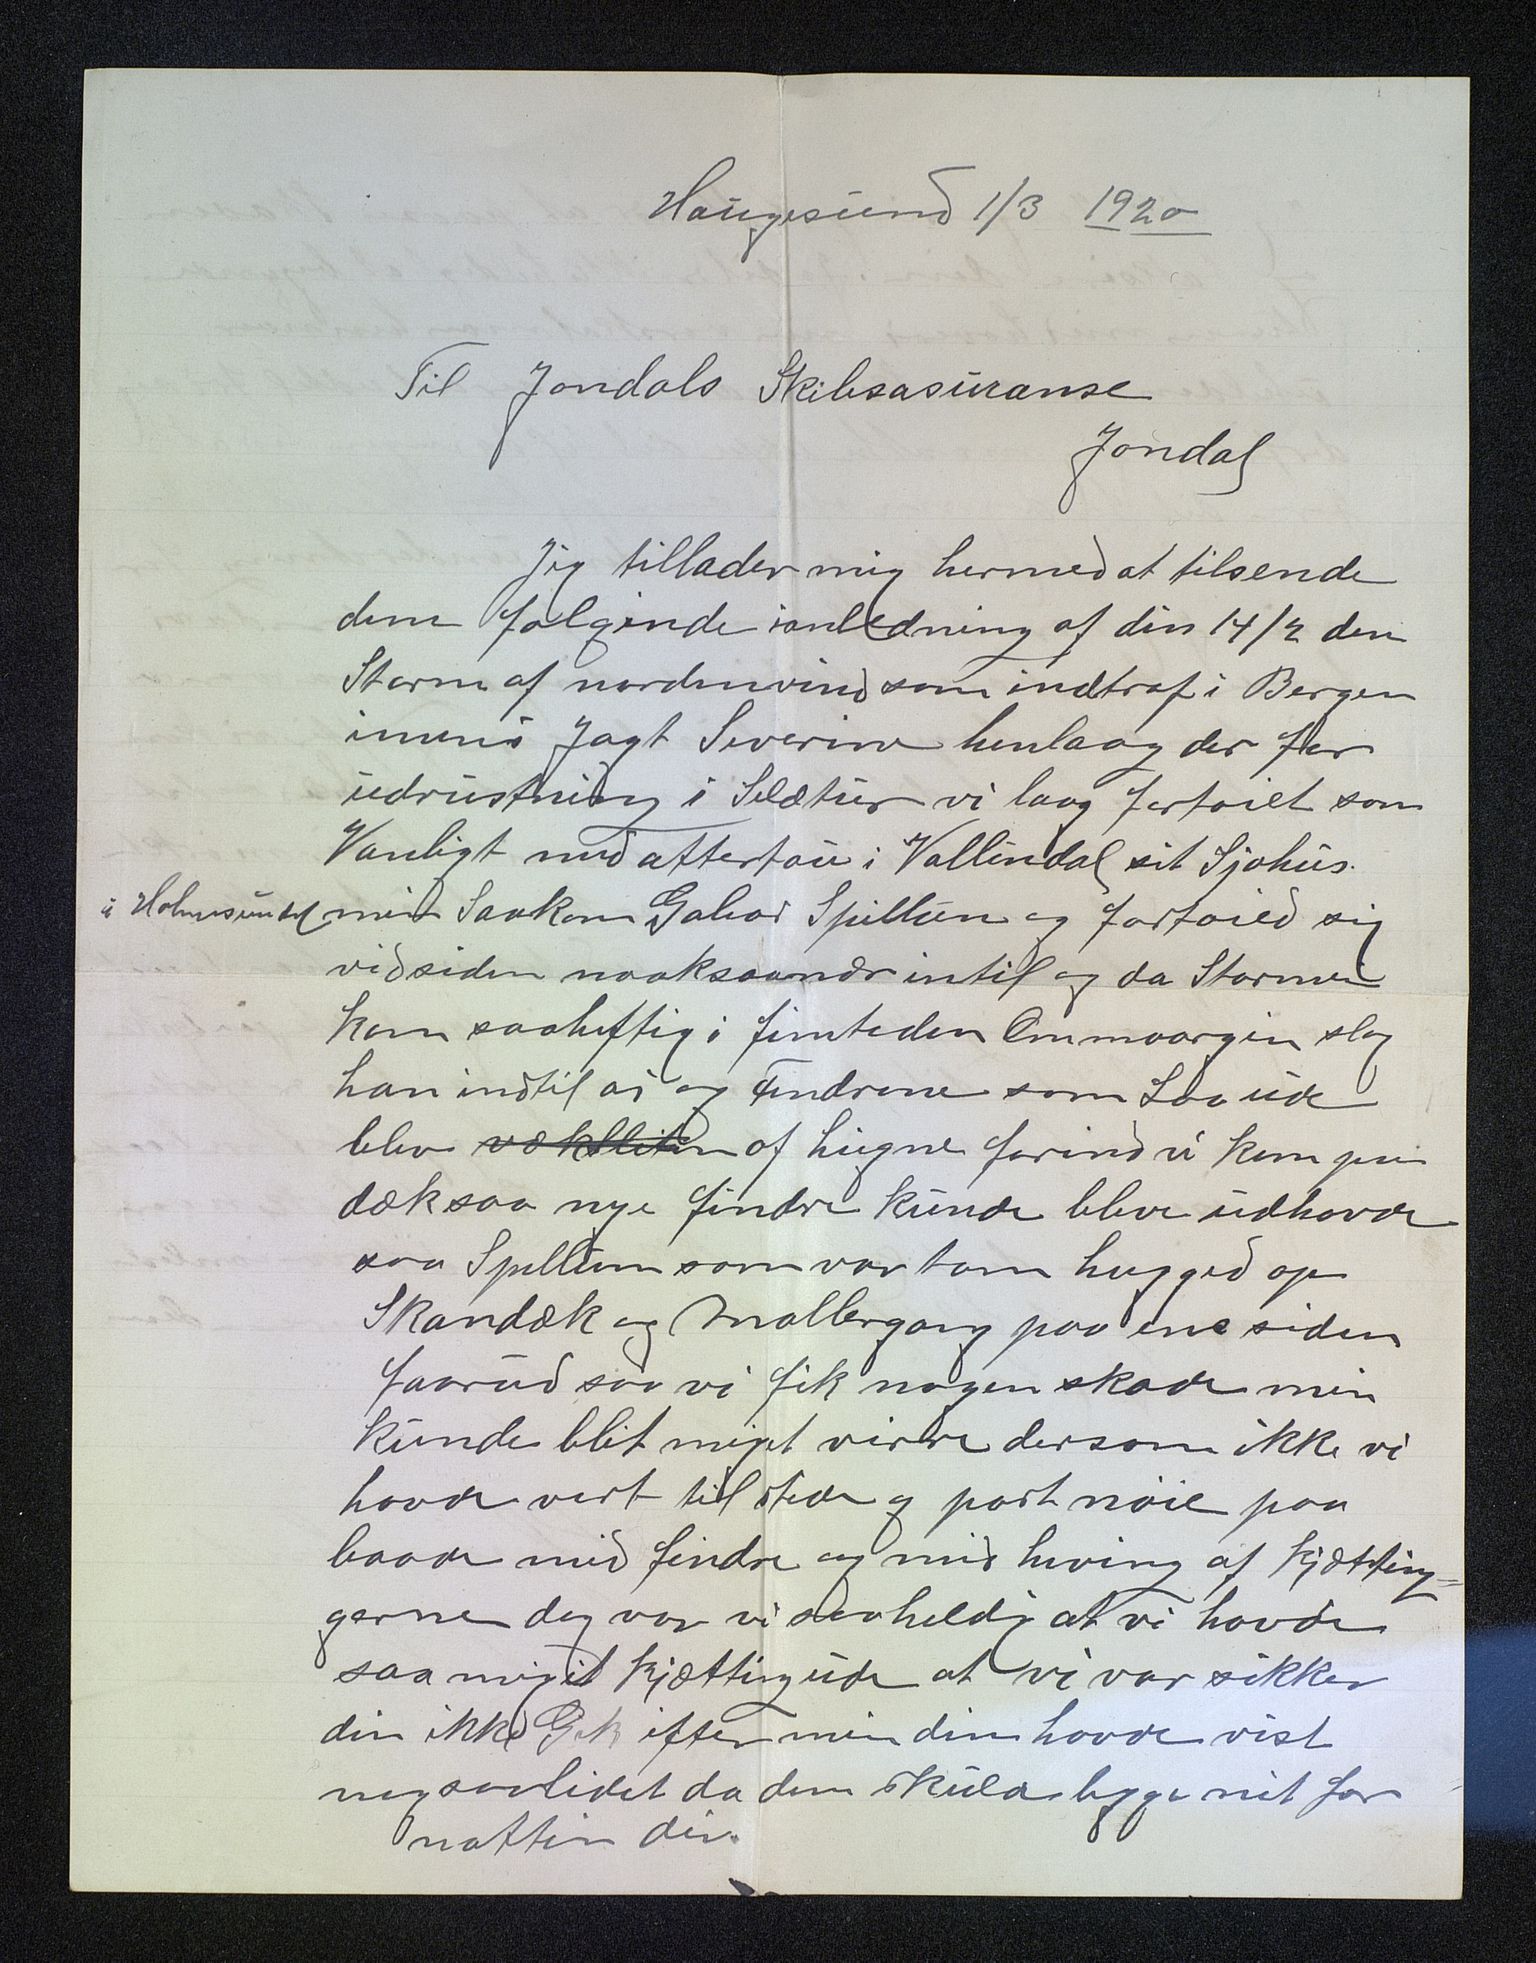 Haugesund 1/3 1920
Til Jondals Skibsasuranse
Jondal
Jeg tillader mig hermed at tilsende
dem følgende ianledning af den 14/2 den
Storm af nordenvind som indtraf i Bergen
imens Jagt Severine henlaag der for
udrustning i Sildetur vi laag fortøiet som
Vanligt med attertau i Vallendal sit Sjøhus.
i Holmesundet men Saa kom Galias Spillum og fortøied sig
vedsiden noksaanær intil og da Stormen
kom saaheftig i femteden Ommaargen slog
han indtil os og Fendrene som Laa ude
blev væksliten af hugne forind vi kom paa
dæk saa nye fendre kunde bleve udhavde
saa Spillum som var tom hugged op
Skandæk og Mallergang paa ene siden
faarud saa vi fik nogen skade men
kunde blit meget verre dersom ikke vi
havde vert tilstede og past nøie paa
baade med fendre og med hiving af Kjætting=
gerne dog var vi saaheldig at vi havde
saa meget Kjætting ude at vi var sikker
den ikke Gik efter men dem havde vist
nogsaalidet da dem skulde ligge net for
natten der.